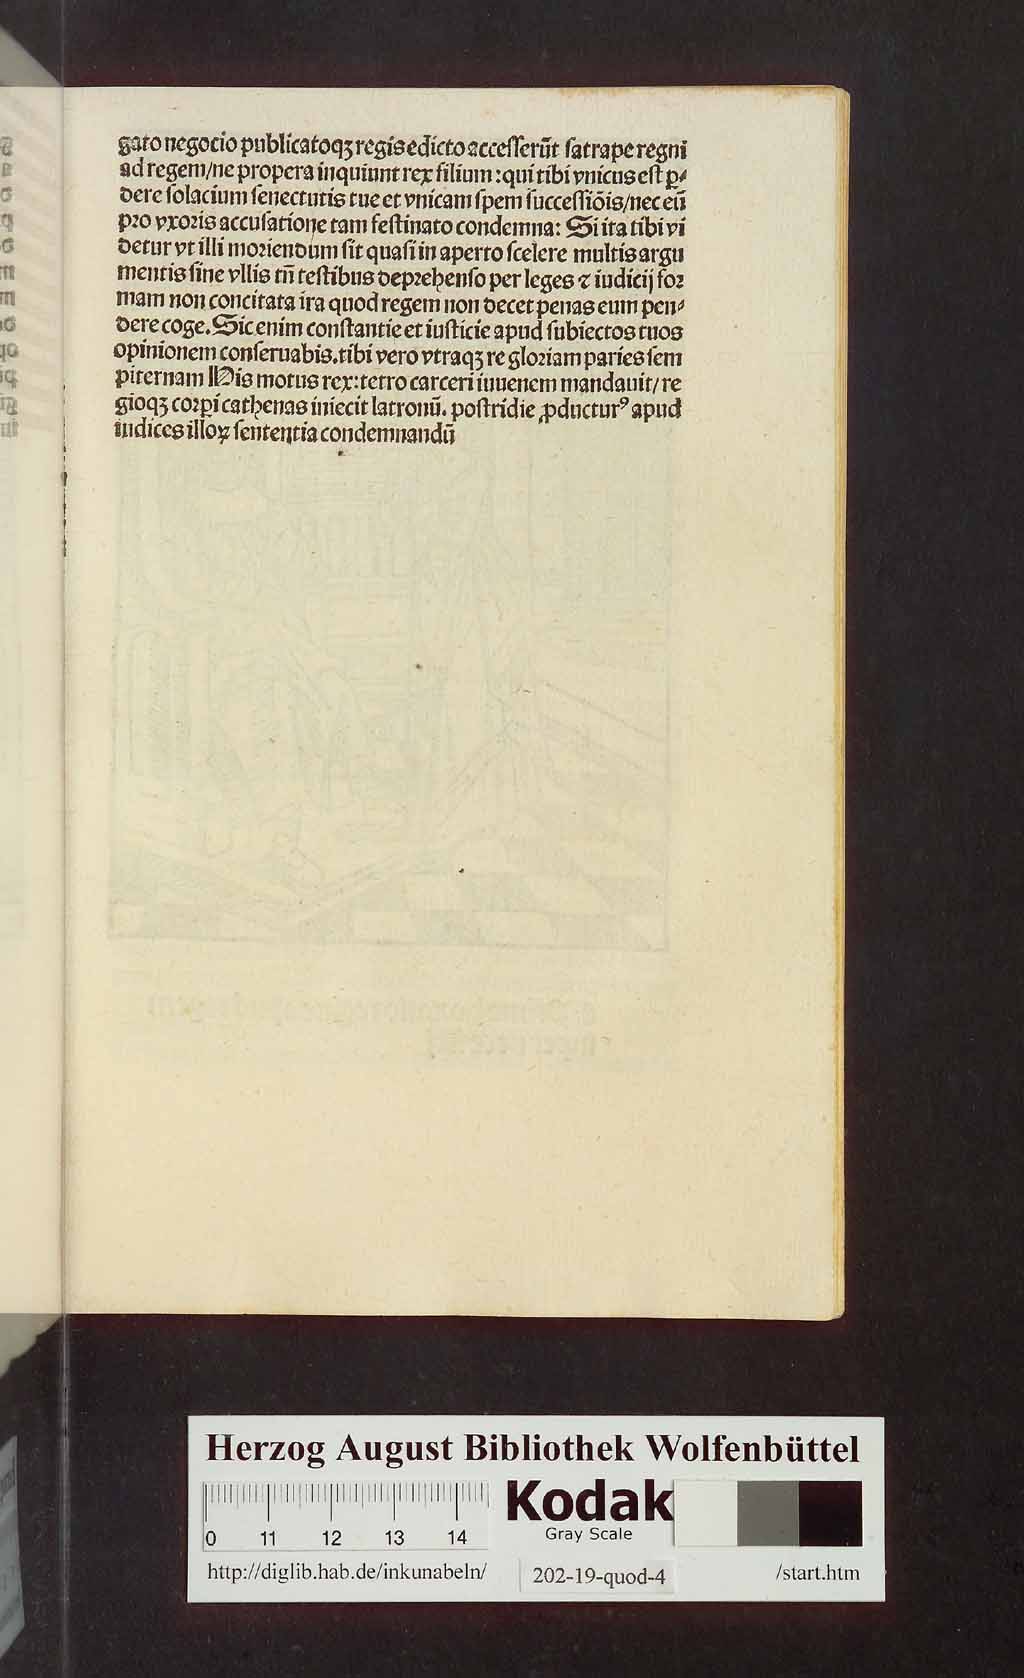 gato negocio publicatoqꝫ regis edicto accesserūt satrape regni
ad regem/ne propera inquiunt rex filium: qui tibi vnicus est ꝑ⸗
dere solacium senectutis tue et vnicam spem successiōis/nec eū
pro vxoris accusatione tam festinato condemna: Si ita tibi vi
detur vt illi moriendum sit quasi in aperto scelere multis argu
mentis sine vllis tn̄ testibus deprehenso per leges ⁊ iudicij for
mam non concitata ira quod regem non decet penas eum pen⸗
dere coge. Sic enim constantie et iusticie apud subiectos tuos
opinionem conseruabis. tibi vero vtraqꝫ re gloriam paries sem
piternam His motus rex: tetro carceri iuuenem mandauit/ re
gioqꝫ corpi cathenas iniecit latronū. postridie ꝓducturꝰ apud
iudices illoꝝ sententia condemnandū
Herzog August Bibliothek Wolfenbüttel
Kodak
Gray Scale
0 11 12 13 14
http://diglib.hab.de/inkunabeln/ 202-19-quod-4 /start.htm